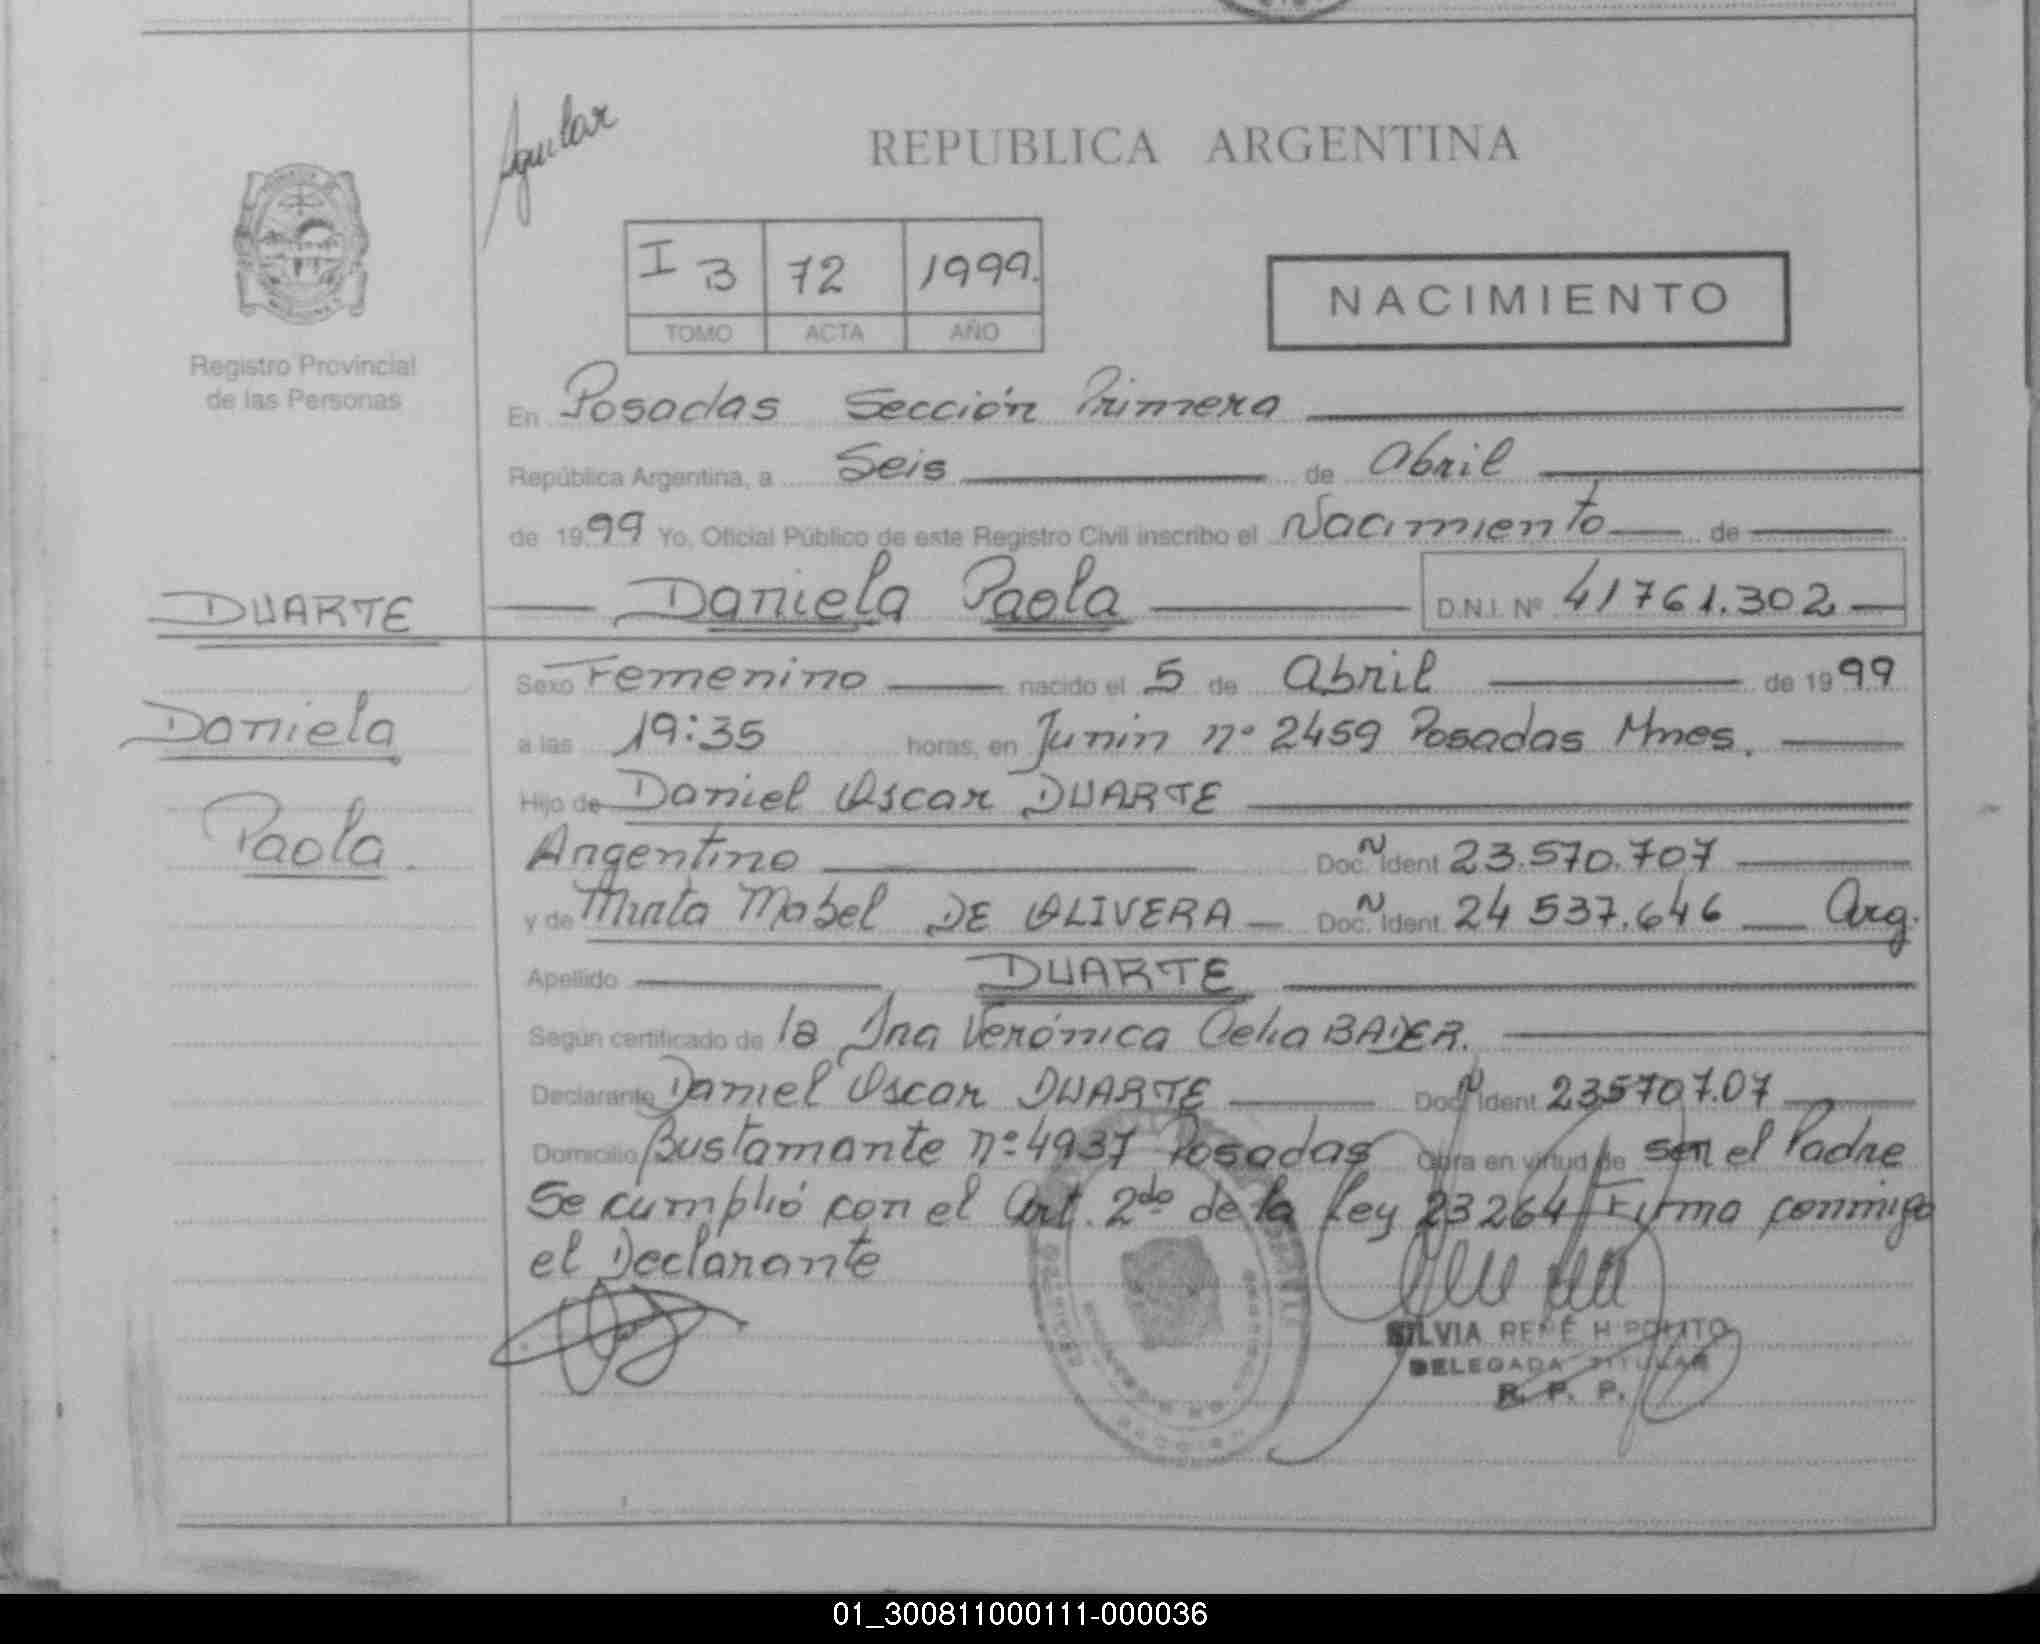 Aguilar
REPUBLICA ARGENTINA
I B 72 1999.
TOMO ACTA AÑO
NACIMIENTO
Registro Provincial
de las Personas
En Posadas Sección Primera
República Argentina, a Seis de Abril
de 1999 Yo, Oficial Público de este Registro Civil inscribo el Nacimiento de
DUARTE
Daniela
Paola.
Daniela Paola D.N.I. Nº 41761.302
Sexo Femenino nacido el 5 de Abril de 1999
a las 19:35 horas, en Junin nº 2459 Posadas Mnes.
Hijo de Daniel Oscar DUARTE
Argentino Doc. N Ident 23.570.707
y de Mirta Mabel DE OLIVERA Doc. N Ident. 24 537.646 Arg.
Apellido DUARTE
Según certificado de la Verónica Celia BAIER.
Declarante Daniel Oscar DUARTE Doc. N Ident 23570707
Domicilio Bustamante nº 4937 Posadas Obra en virtud de ser el Padre
Se cumplió con el Art. 2do de la Ley 23264 Firma conmigo
el Declarante
SILVIA RENÉ HIPOLITO
DELEGADA TITULAR
R. P. P.
01_300811000111-000036